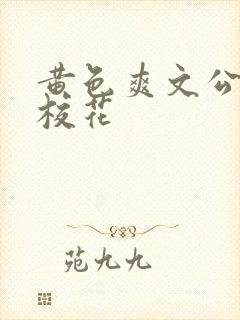 黄色爽文公
校花
苑九九